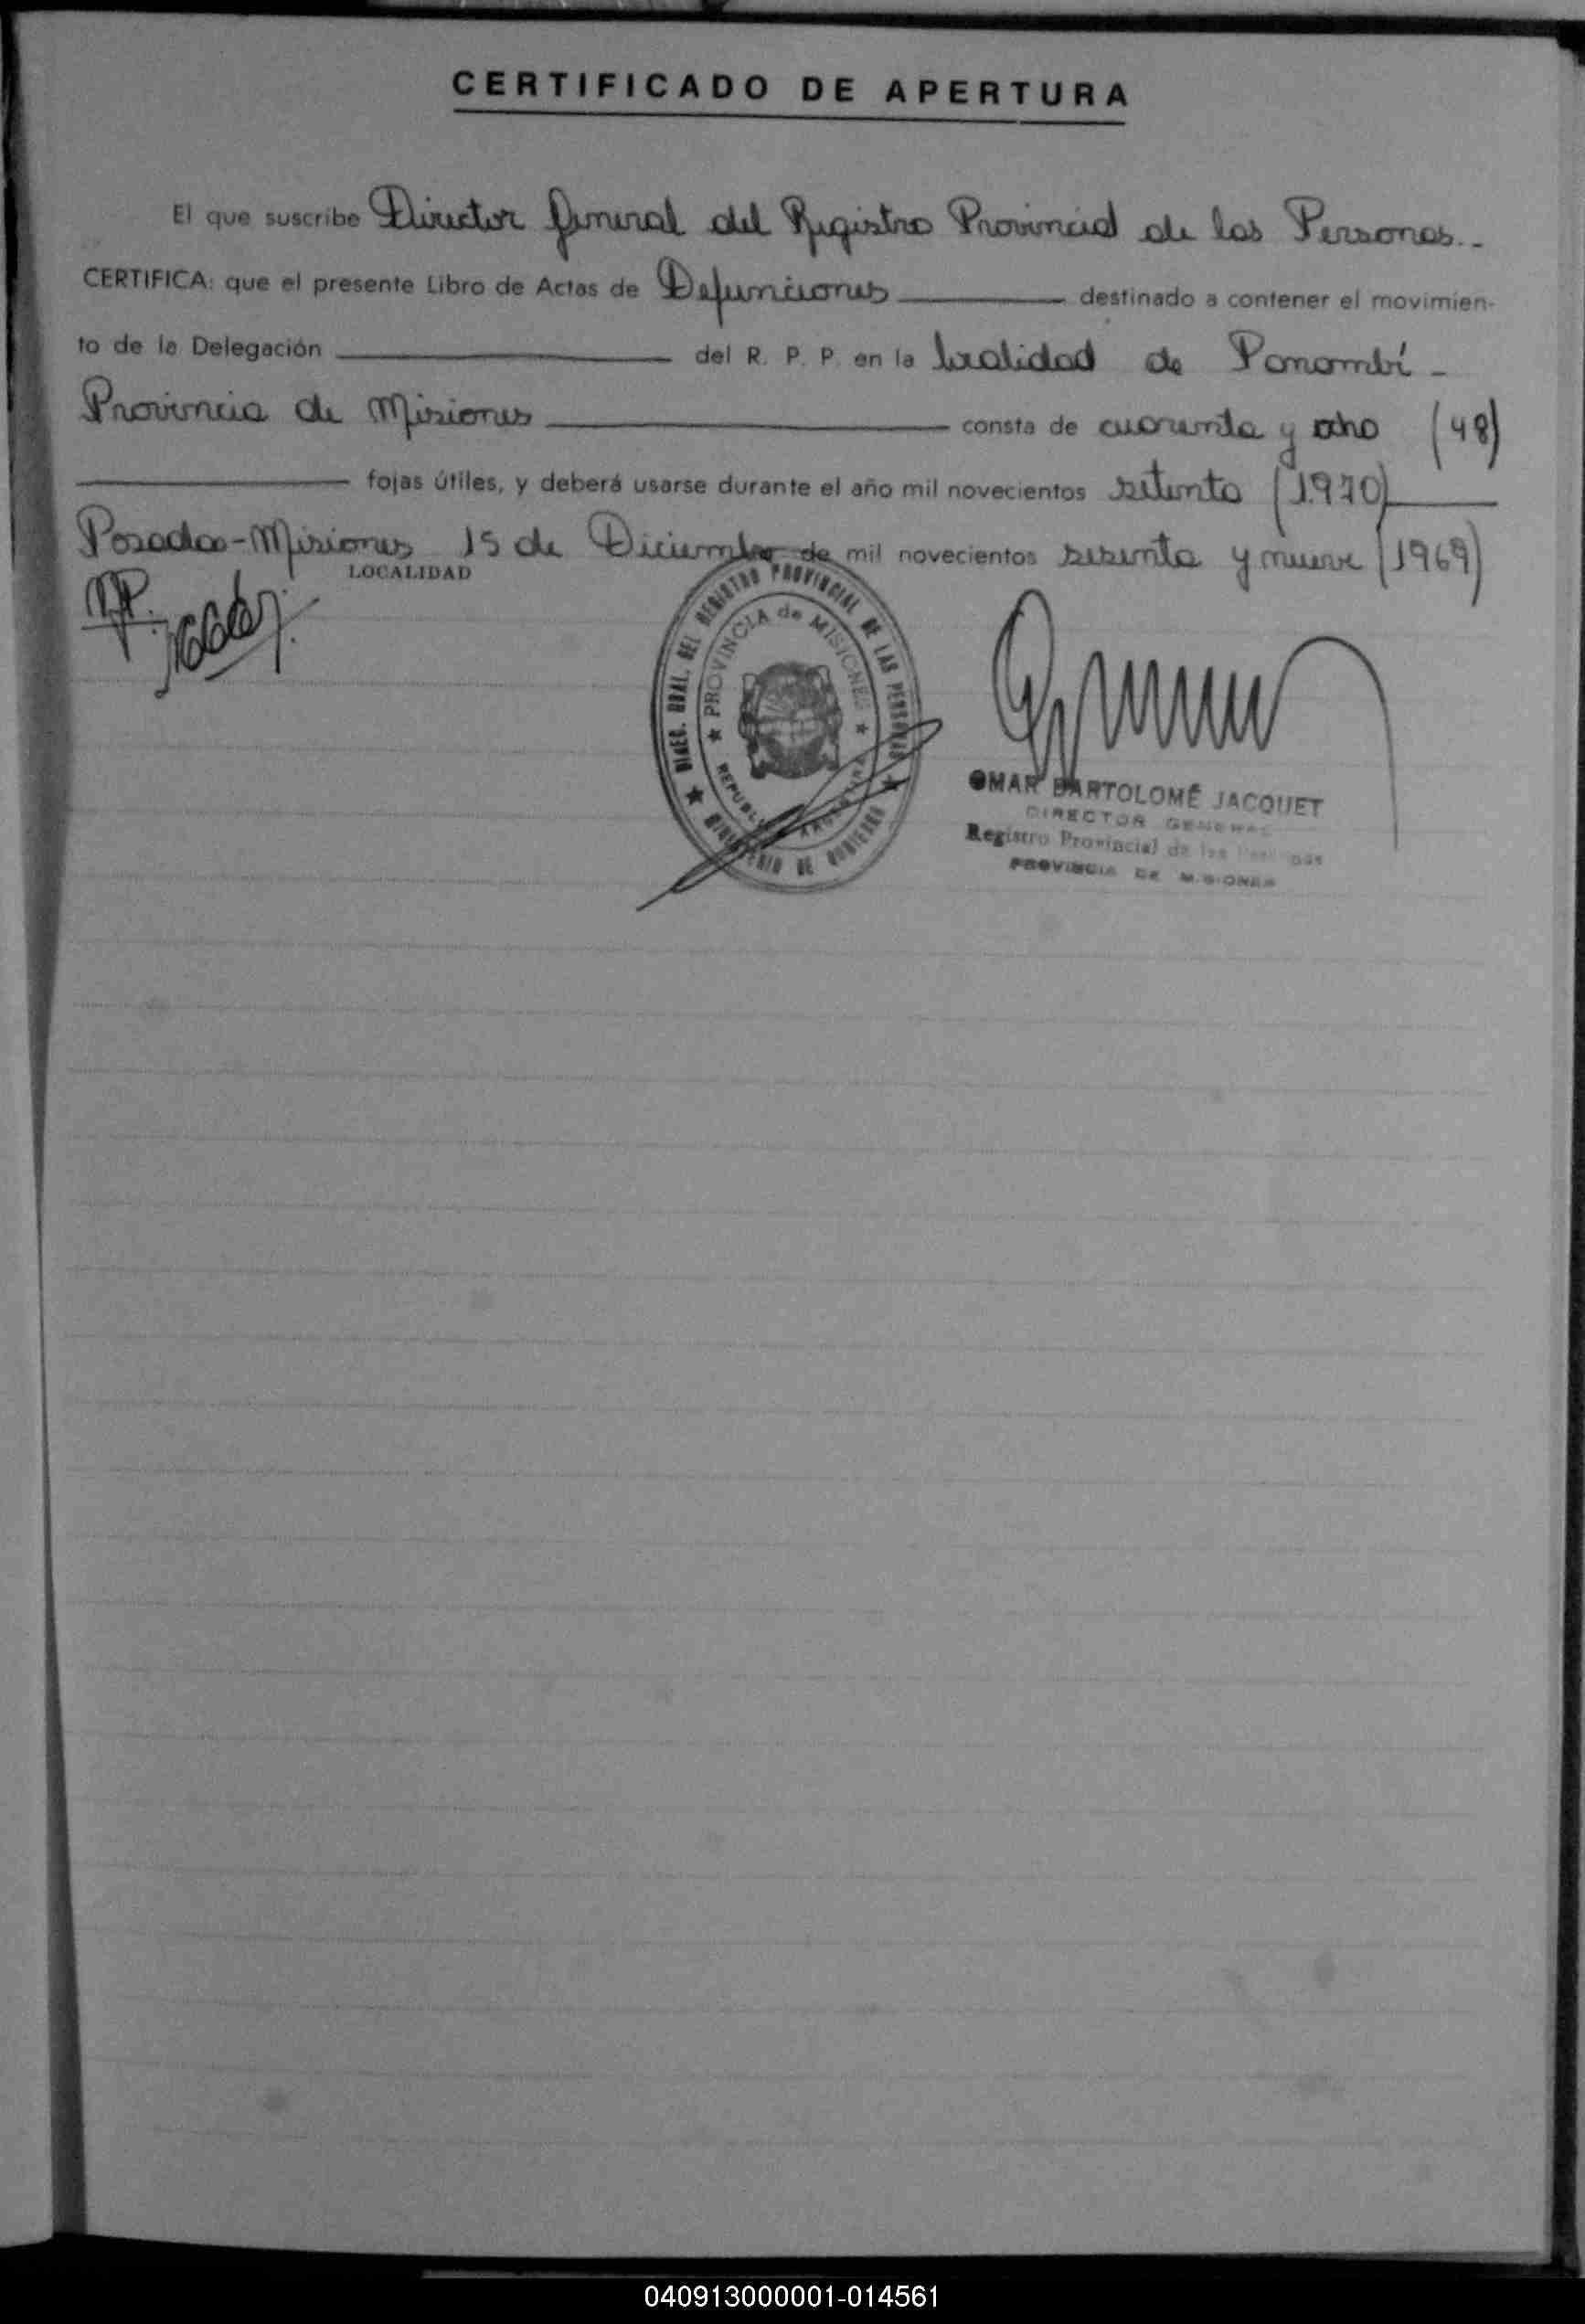 CERTIFICADO DE APERTURA
El que suscribe Director General del Registro Provincial de las Personas.-
CERTIFICA: que el presente Libro de Actas de Defunciones destinado a contener el movimien-
to de la Delegación del R. P. P. en la localidad de Panambí -
Provincia de Misiones consta de cuarenta y ocho (48)
fojas útiles, y deberá usarse durante el año mil novecientos setenta (1.970)
Posadas-Misiones 15 de Diciembre de mil novecientos sesenta y nueve (1969)
LOCALIDAD
DIREC. GRAL. DEL REGISTRO PROVINCIAL DE LAS PERSONAS
PROVINCIA de MISIONES
REPUBLICA ARGENTINA
MINISTERIO DE GOBIERNO
OMAR BARTOLOMÉ JACQUET
DIRECTOR GENERAL
Registro Provincial de las Personas
PROVINCIA DE MISIONES
040913000001-014561